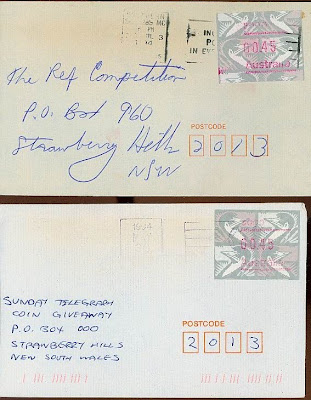 0045
Australia
The Ref Competition
P.O. Box 960
Strawberry Hills
NSW
POSTCODE
2013
0045
SUNDAY TELEGRAPH
COIN GIVEAWAY
P.O. BOX 000
STRAWBERRY HILLS
NEW SOUTH WALES
POSTCODE
2013